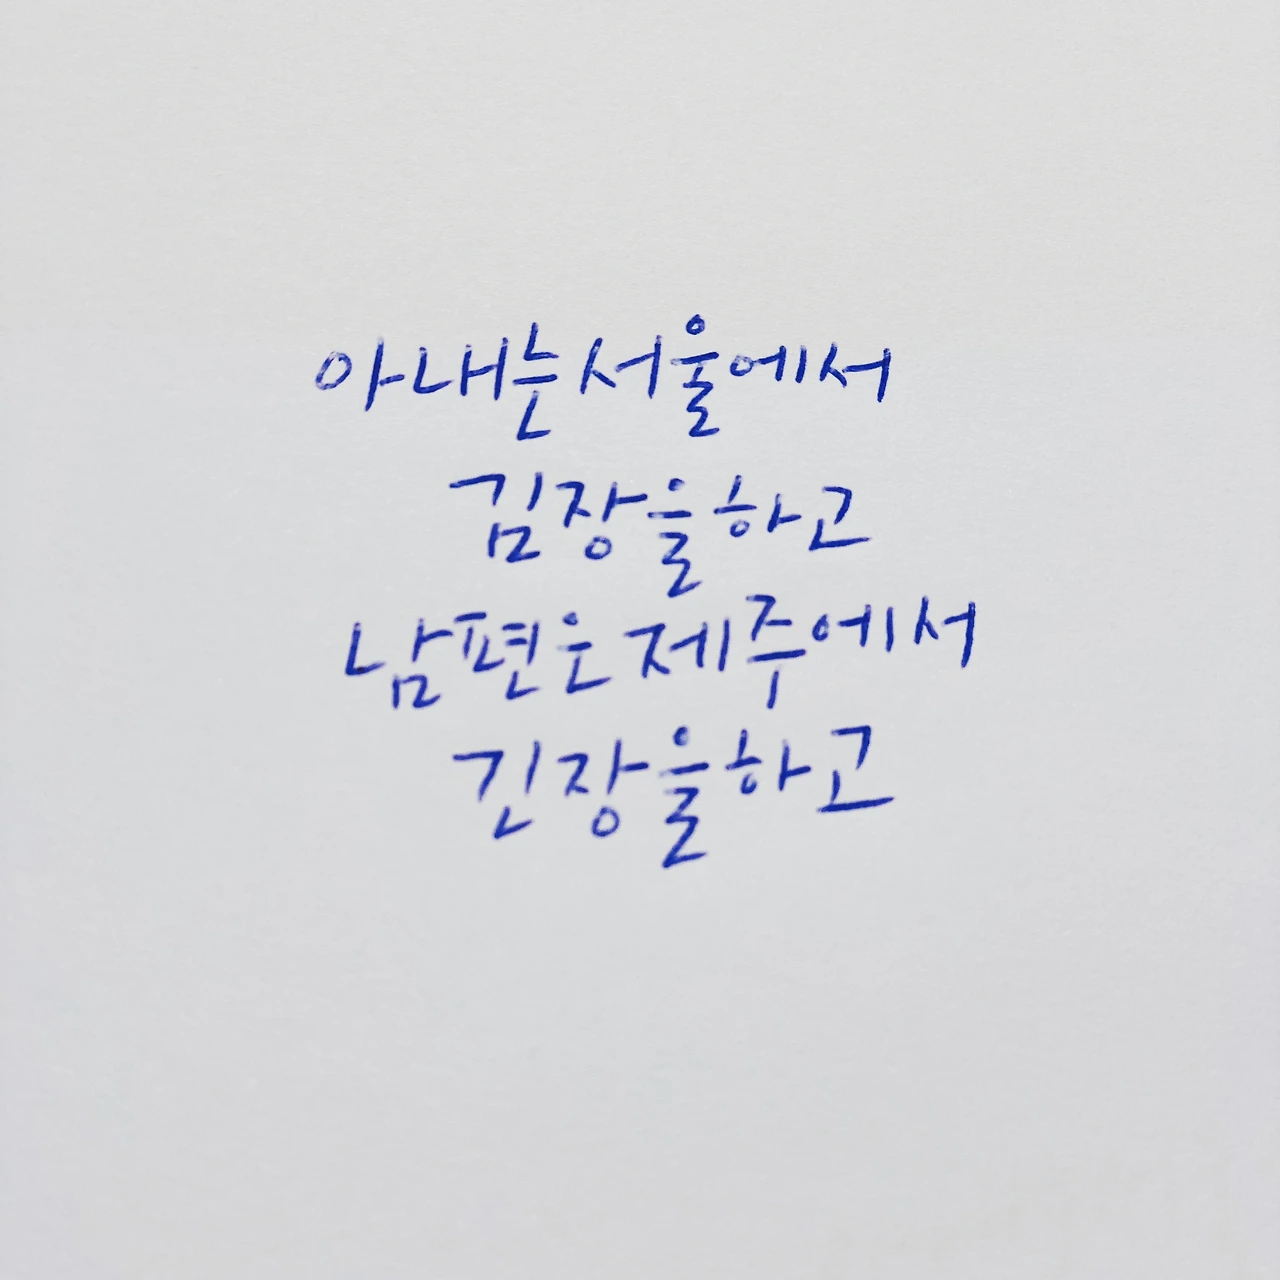 아내는 서울에서
김장을 하고
남편은 제주에서
긴장을 하고